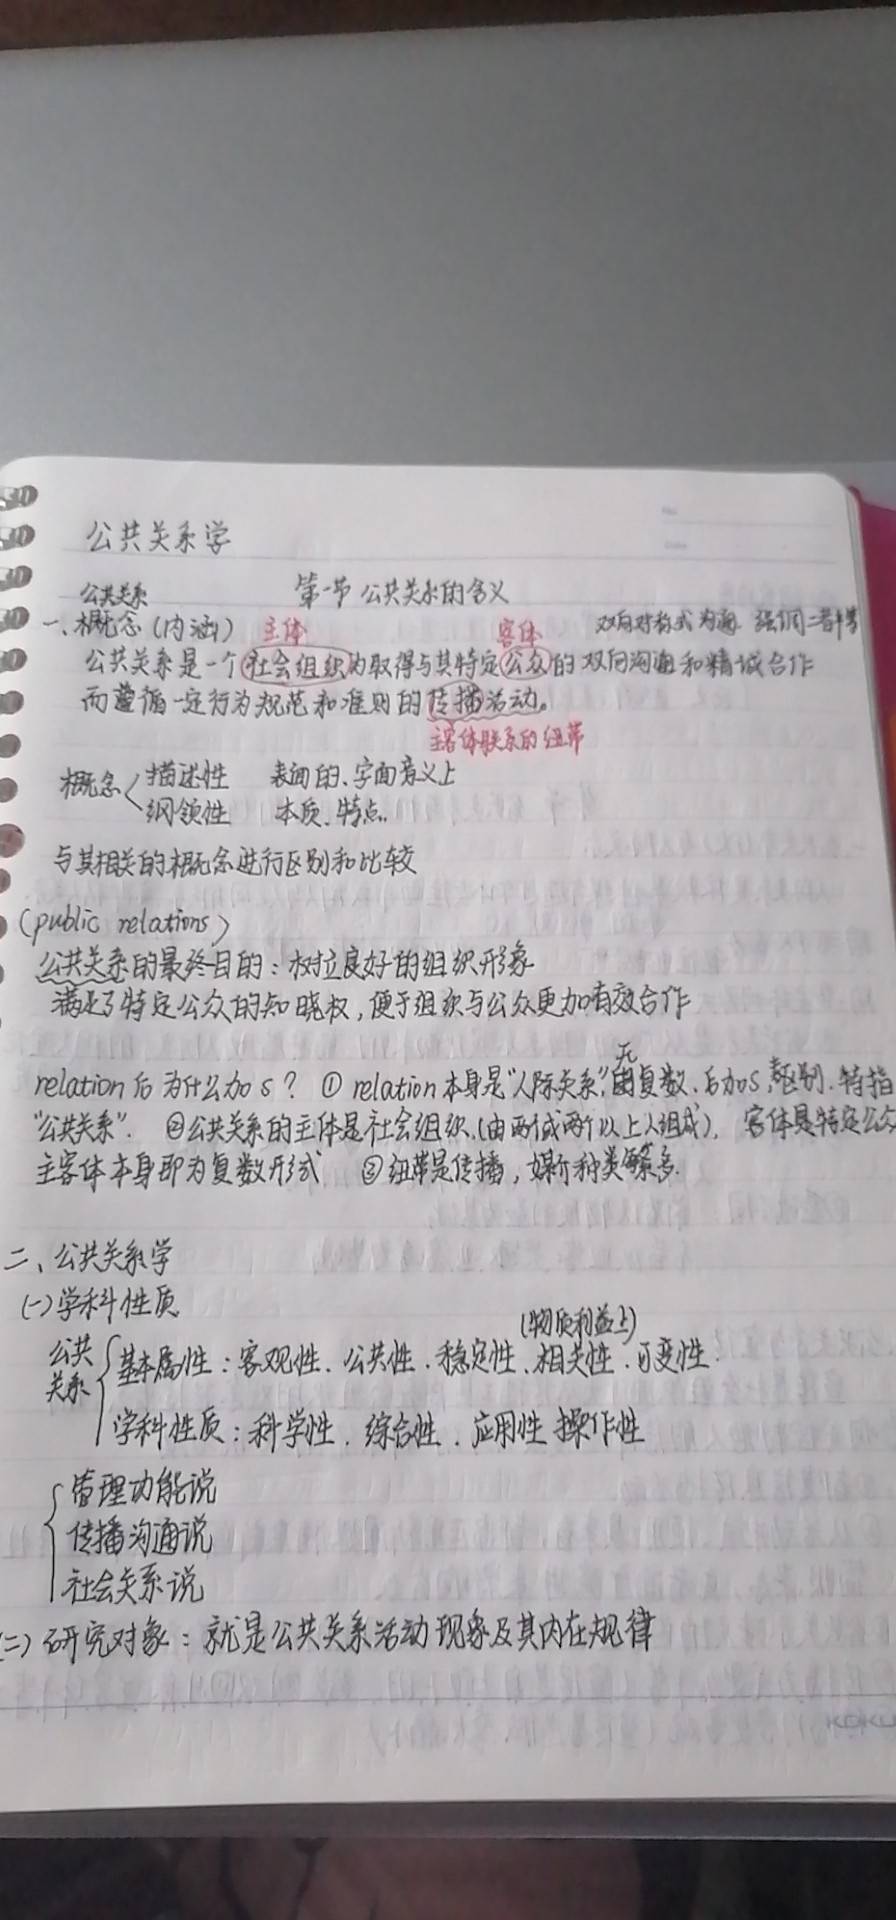 公共关系学
公共关系 第一节 公共关系的含义
一、概念(内涵) 主体 客体 双向对称式沟通 强调二者平等
公共关系是一个社会组织为取得与其特定公众的双向沟通和精诚合作
而遵循一定行为规范和准则的传播活动。
主客体联系的纽带
概念 描述性 表面的、字面意义上
纲领性 本质、特点.
与其相关的概念进行区别和比较
(public relations)
公共关系的最终目的:树立良好的组织形象
满足了特定公众的知晓权,便于组织与公众更加有效合作
无
relation后为什么加s? ① relation本身是“人际关系”,复数.后加s,区别.特指
“公共关系”. ②公共关系的主体是社会组织.(由两个或两个以上人组成), 客体是特定公众
主客体本身即为复数形式 ③纽带是传播,媒介种类繁多.
二、公共关系学
(一)学科性质
(物质利益上)
公共关系 基本属性:客观性.公共性.稳定性、相关性.可变性.
学科性质:科学性.综合性.应用性 操作性
管理功能说
传播沟通说
社会关系说
(二)研究对象:就是公共关系活动现象及其内在规律